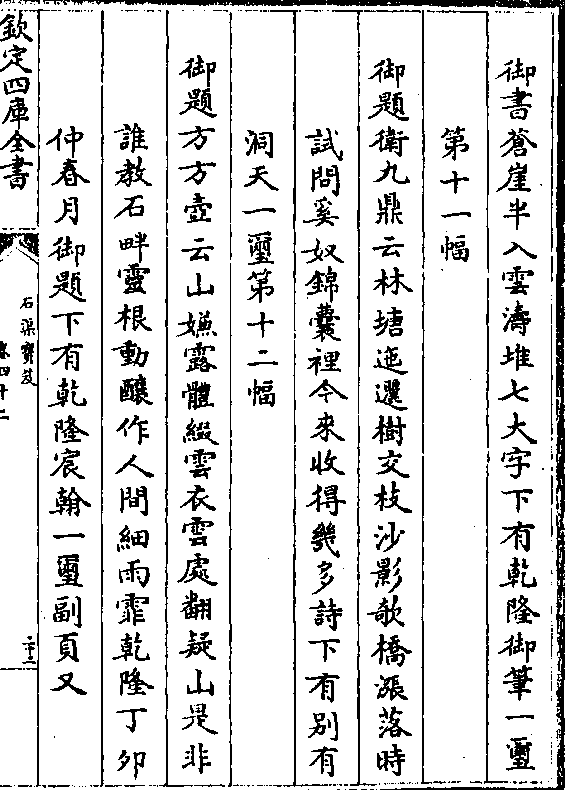 御書蒼崖半入雲濤堆七大字下有乾隆御筆一璽
第十一幅
御題衛九鼎云林塘迤邐樹交枝沙影欹橋漲落時
試問奚奴錦囊裡今來收得幾多詩下有別有
洞天一璽第十二幅
御題方方壺云山嫌露體綴雲衣雲處翻疑山是非
誰教石畔靈根動釀作人間細雨霏乾隆丁卯
仲春月御題下有乾隆宸翰一璽副頁又
欽定四庫全書
石渠寶芨
卷四十二
二十三